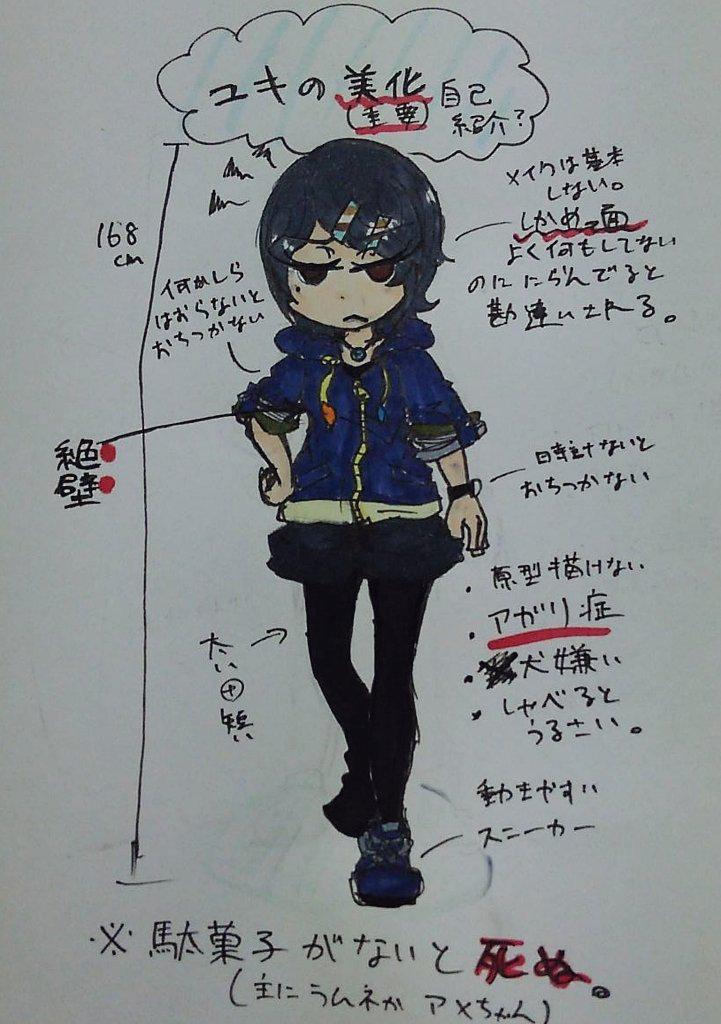 ユキの美化自己
(重要)紹介?
168
cm
メイクは基本
しない。
しかめっ面
よく何もしてない
のににらんでると
勘違いされる。
何かしら
はおらないと
おちつかない
絶
壁
時計ないと
おちつかない
・原型描けない
・アガリ症
・犬嫌い
・しゃべると
うるさい。
太い⊕短い
動きやすい
スニーカー
※駄菓子がないと死ぬ。
(主にラムネかアメちゃん)